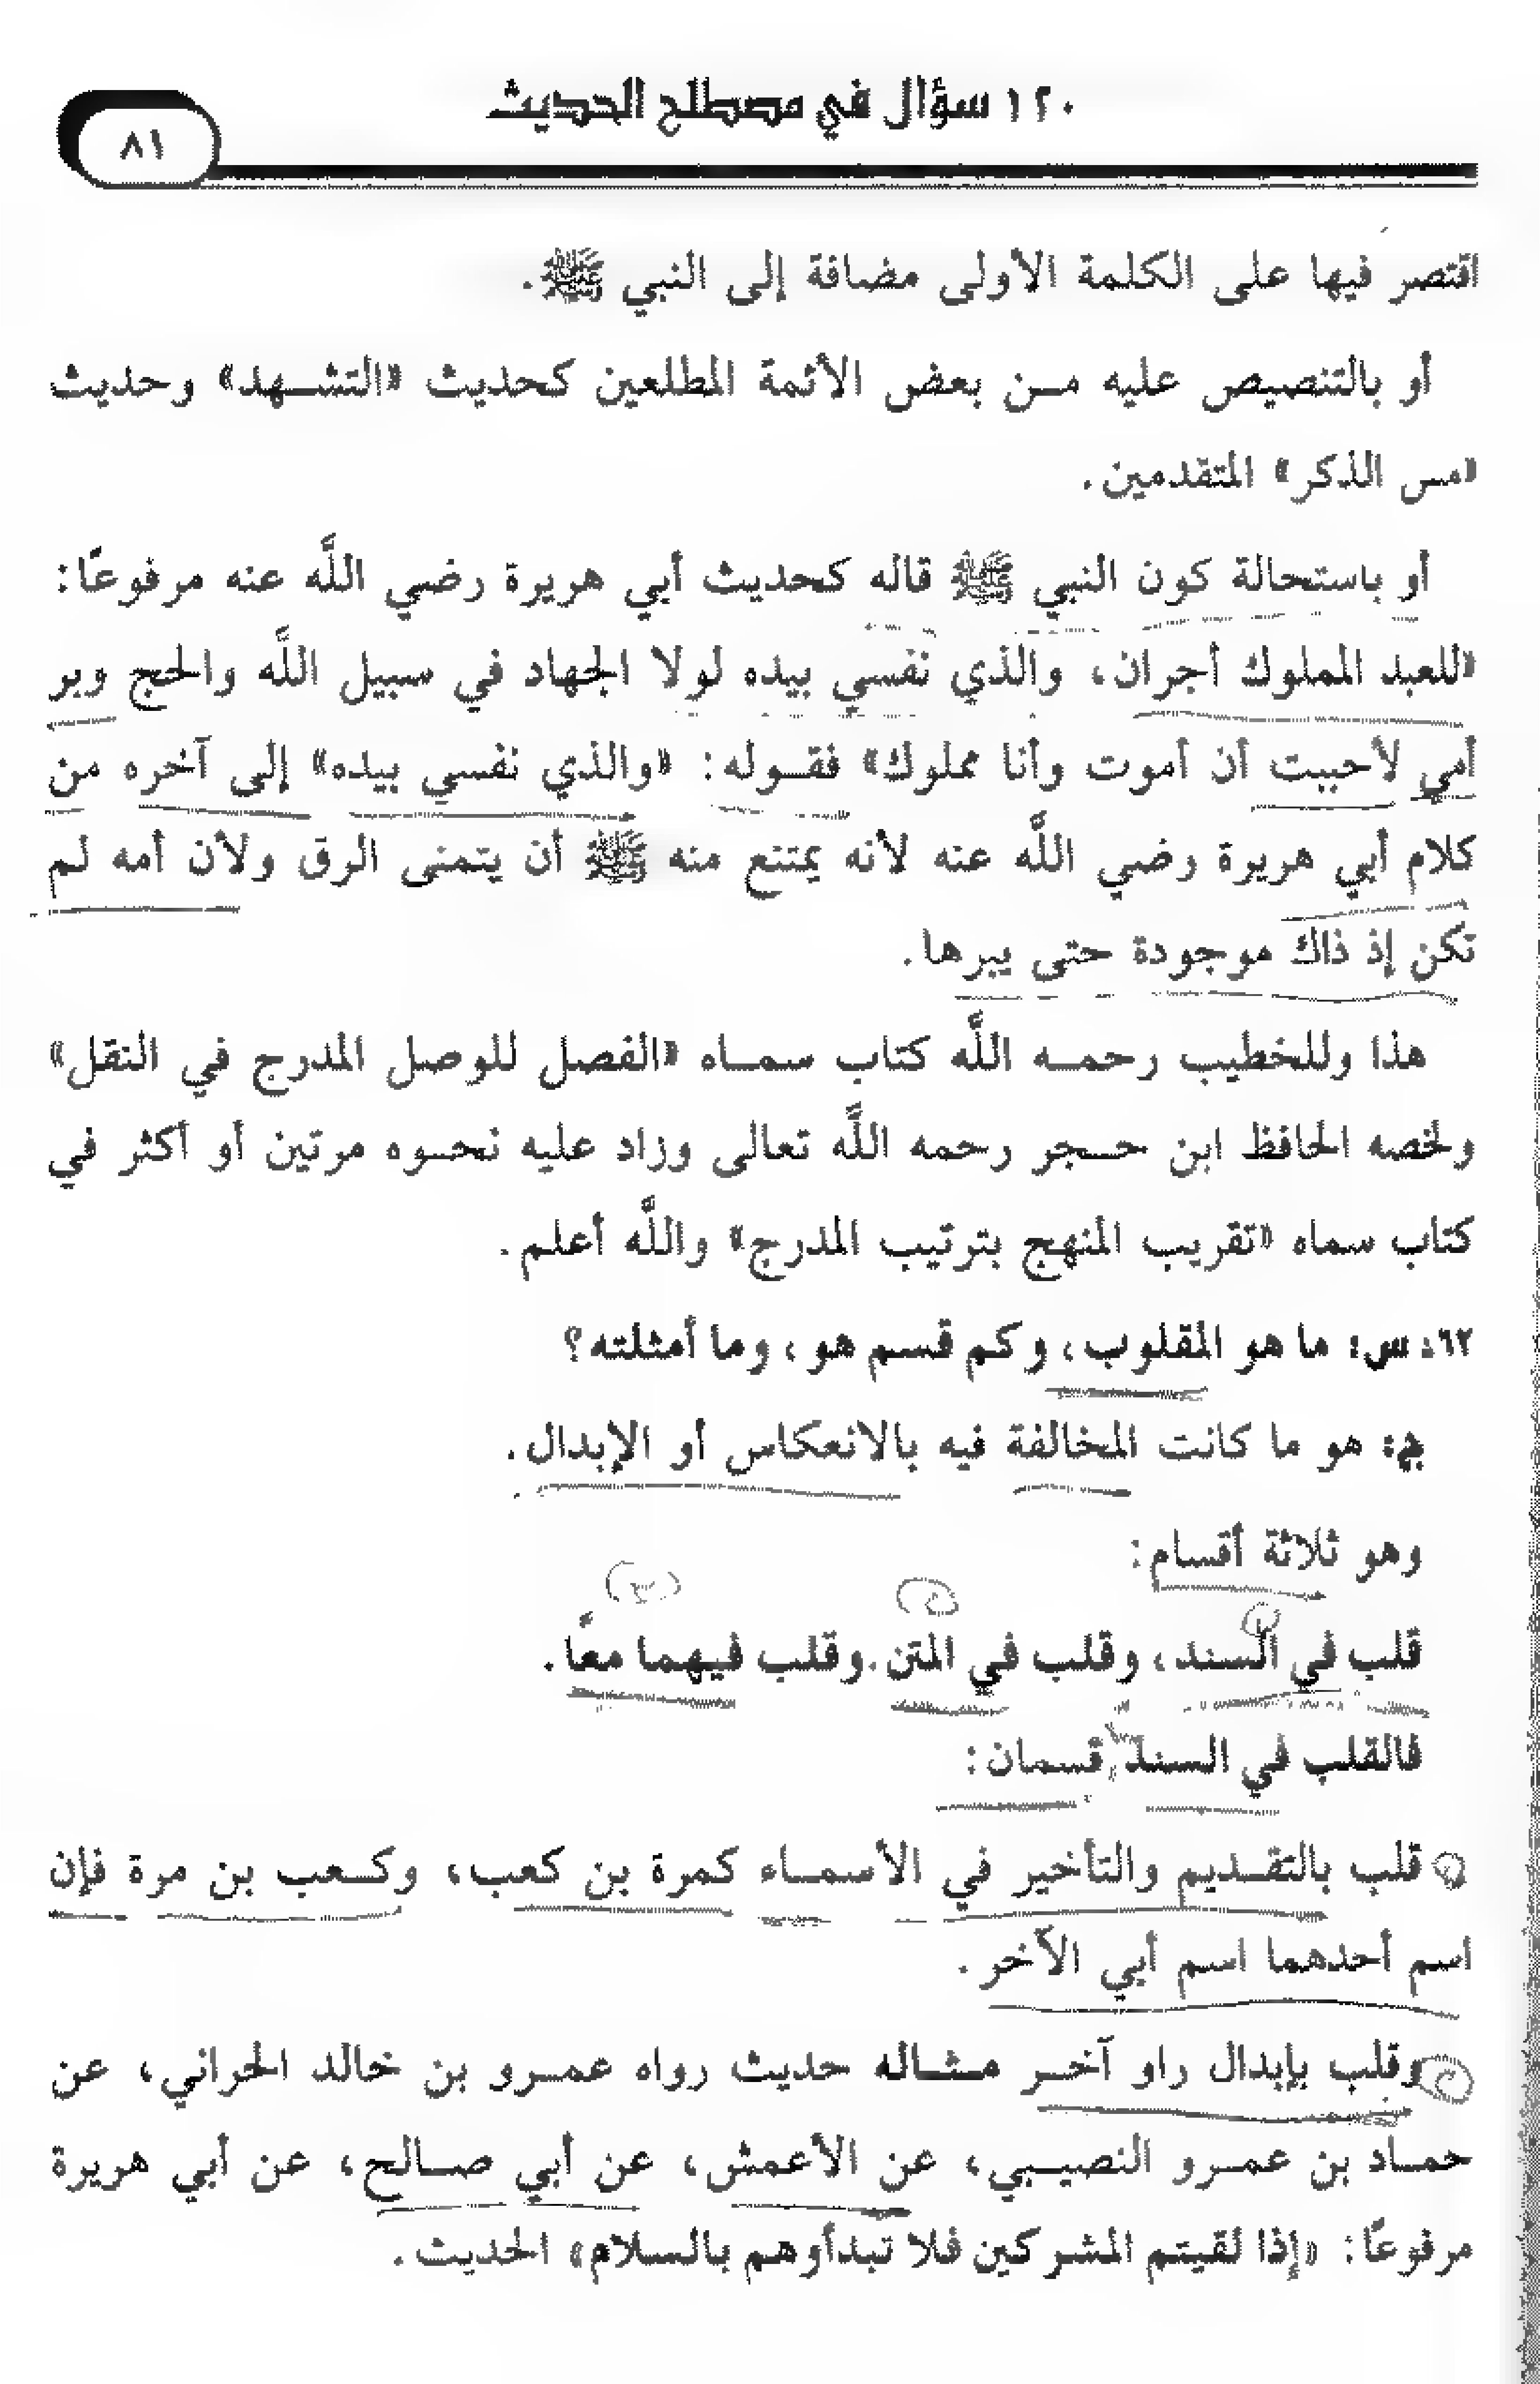 ١٢٠ سؤال في مصطلح الحديث
٨١
اقتصر فيها على الكلمة الأولى مضافة إلى النبي ﷺ.
أو بالتنصيص عليه من بعض الأئمة المطلعين كحديث «التشهد» وحديث
«مس الذكر» المتقدمين.
أو باستحالة كون النبي ﷺ قاله كحديث أبي هريرة رضي اللَّه عنه مرفوعًا:
«للعبد المملوك أجران، والذي نفسي بيده لولا الجهاد في سبيل اللَّه والحج وبر
أمي لأحببت أن أموت وأنا مملوك» فقوله: «والذي نفسي بيده» إلى آخره من
كلام أبي هريرة رضي اللَّه عنه لأنه يمتنع منه ﷺ أن يتمنى الرق ولأن أمه لم
تكن إذ ذاك موجودة حتى يبرها.
هذا وللخطيب رحمه اللَّه كتاب سماه «الفصل للوصل المدرج في النقل»
ولخصه الحافظ ابن حجر رحمه اللَّه تعالى وزاد عليه نحوه مرتين أو أكثر في
كتاب سماه «تقريب المنهج بترتيب المدرج» واللَّه أعلم.
٦٢: س: ما هو المقلوب، وكم قسم هو، وما أمثلته؟
ج: هو ما كانت المخالفة فيه بالانعكاس أو الإبدال.
وهو ثلاثة أقسام:
قلب في السند، وقلب في المتن. وقلب فيهما معًا.
فالقلب في السند قسمان:
قلب بالتقديم والتأخير في الأسماء كمرة بن كعب، وكعب بن مرة فإن
اسم أحدهما اسم أبي الآخر.
وقلب بإبدال راو آخر مثاله حديث رواه عمرو بن خالد الحراني، عن
حماد بن عمرو النصيبي، عن الأعمش، عن أبي صالح، عن أبي هريرة
مرفوعًا: «إذا لقيتم المشركين فلا تبدأوهم بالسلام» الحديث.